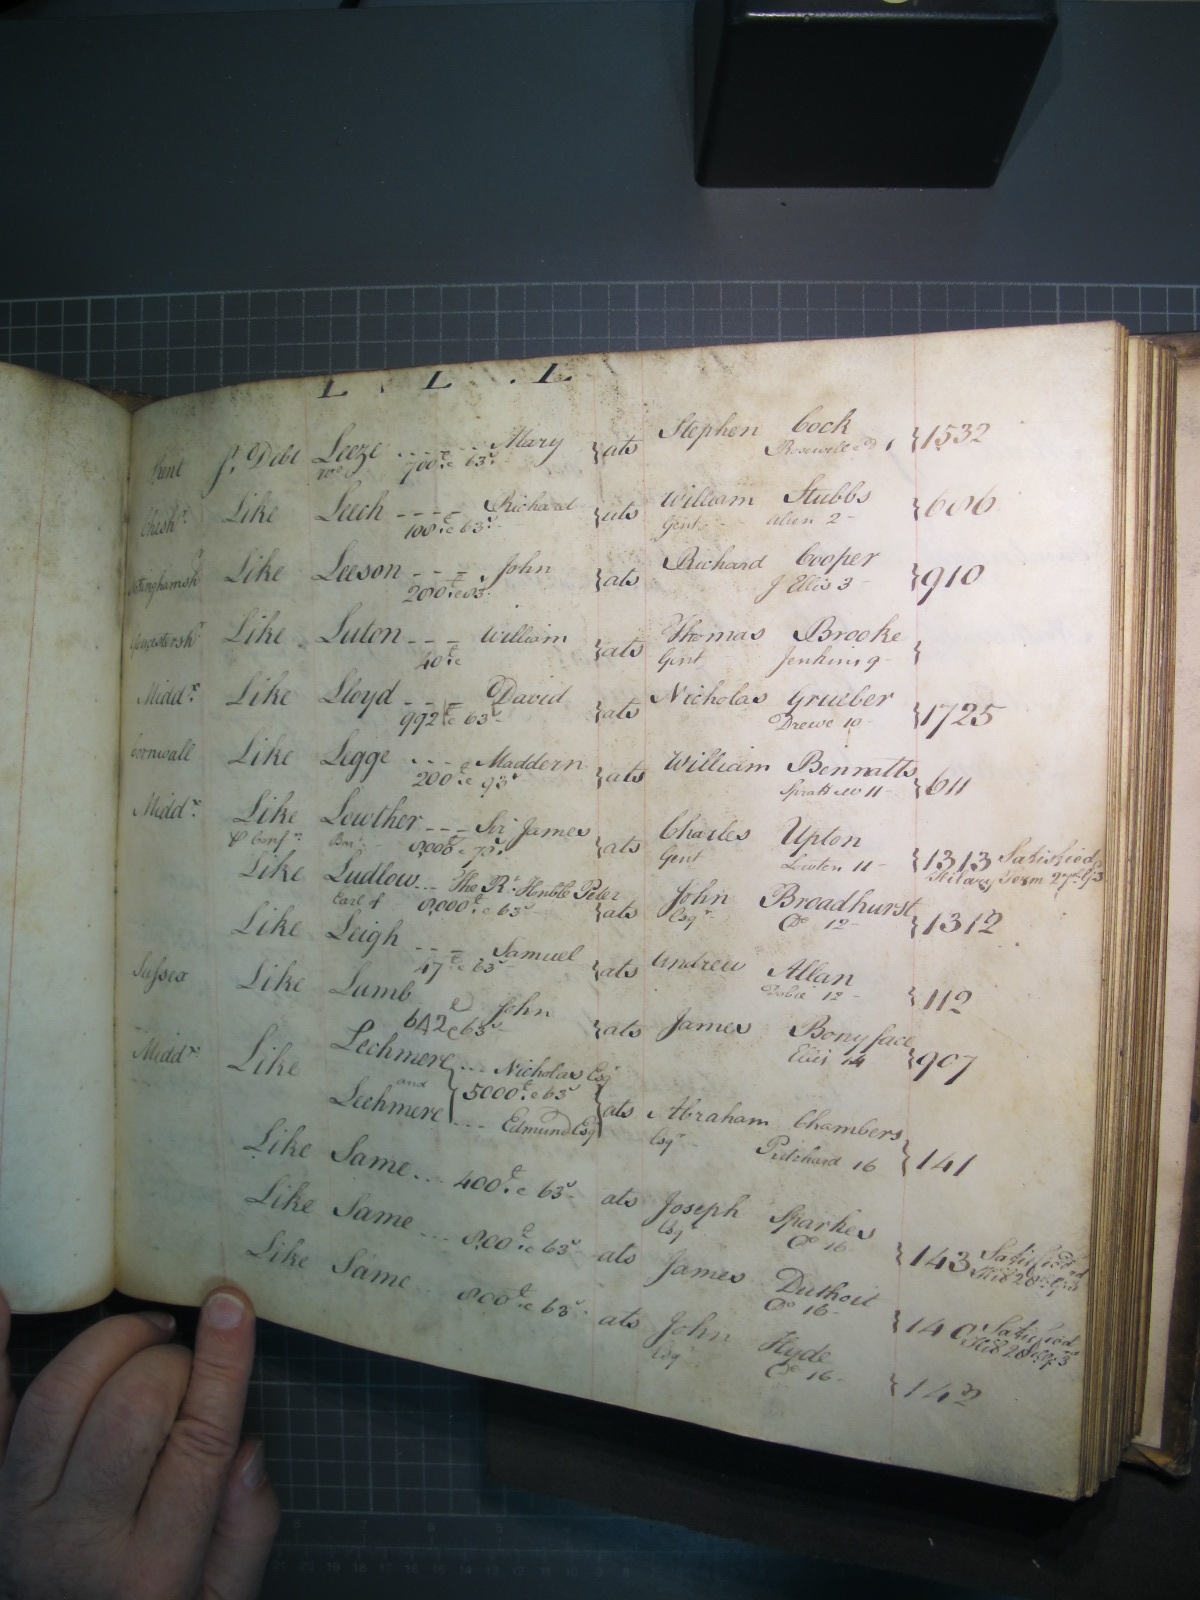 L L L
Kent Jt. Debt Leeze Mary ats Stephen Cock 1532
700£ & 63s Rosewell 1
Chesh.r Like Leech Richard ats William Stubbs 686
108£ & 63s Gent Allen 2
Nottinghamsh Like Leeson John ats Richard Cooper 910
200£ & 63s J Ellis 3
Gloucestersh.r Like Luton William ats Thomas Brooke
40£ Gent Jenkins 9
Midd.x Like Lloyd David ats Nicholas Grueber 1725
992£ & 63s Drewe 10
Cornwall Like Legge Maddern ats William Bennatts 611
200£ & 93s Spratt 11
Midd.x Like Lowther Sir James ats Charles Upton 1313 Satisfied
Conf.n Bar.t 8000£ Gent Lowten 11 Hilary Term
Like Ludlow The R.t Honble Peter ats John Broadhurst 1312
Earl of 8,000£ & 63s Esq.r Do 12
Like Leigh Samuel ats Andrew Allan 112
47£ & 63s 12
Sussex Like Lumb John ats James Bonyface 907
642£ & 63s Ellis 14
Midd.x Like Lechmere Nicholas Esq.
and 5000£ & 63s
Lechmere Edmund Esq. ats Abraham Chambers 141
Esq.r Pritchard 16
Like Same 400£ & 63s ats Joseph Sparkes 143 Satisfied
Esq.r Do 16
Like Same 800£ & 63s ats James Duthoit 140 Satisfied
Do 16
Like Same 800£ & 63s ats John Hyde 142
Esq.r Do 16